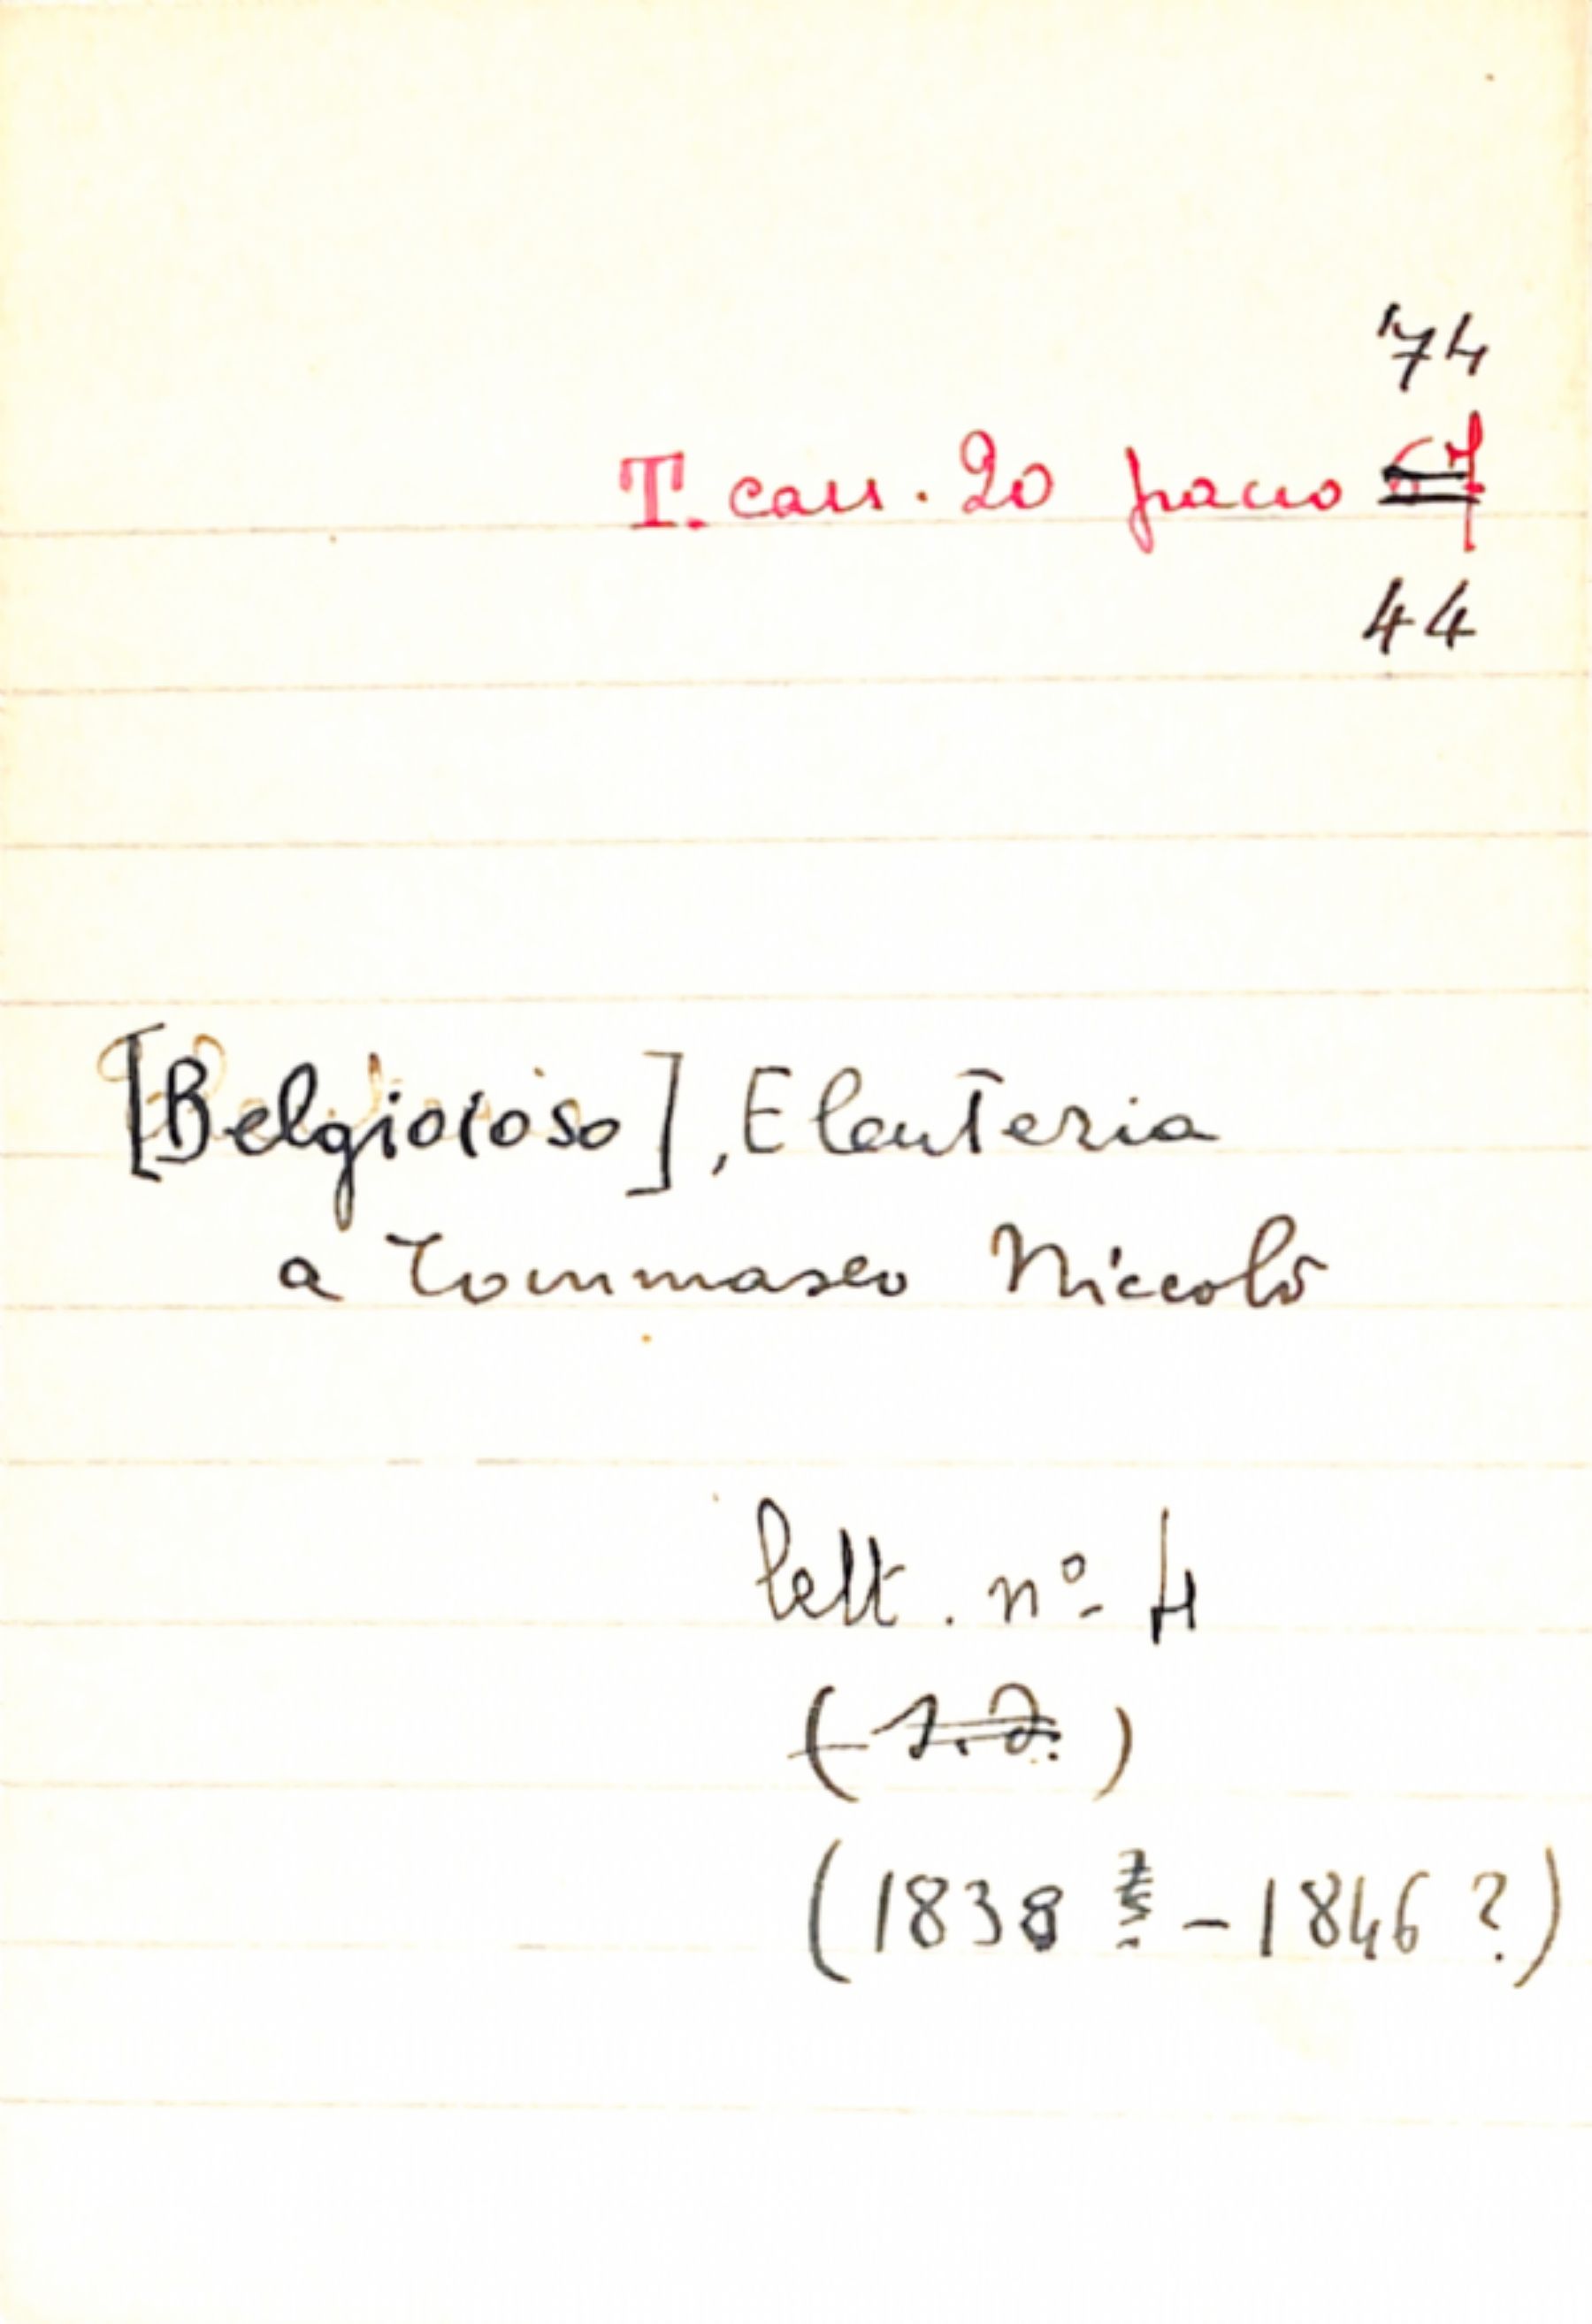 74
T. cass. 20 pacco 67
44
[Belgioioso], Eleuteria
a Tommaseo Niccolò
lett. nº 4
(s.d.)
(1838 - 1846 ?)